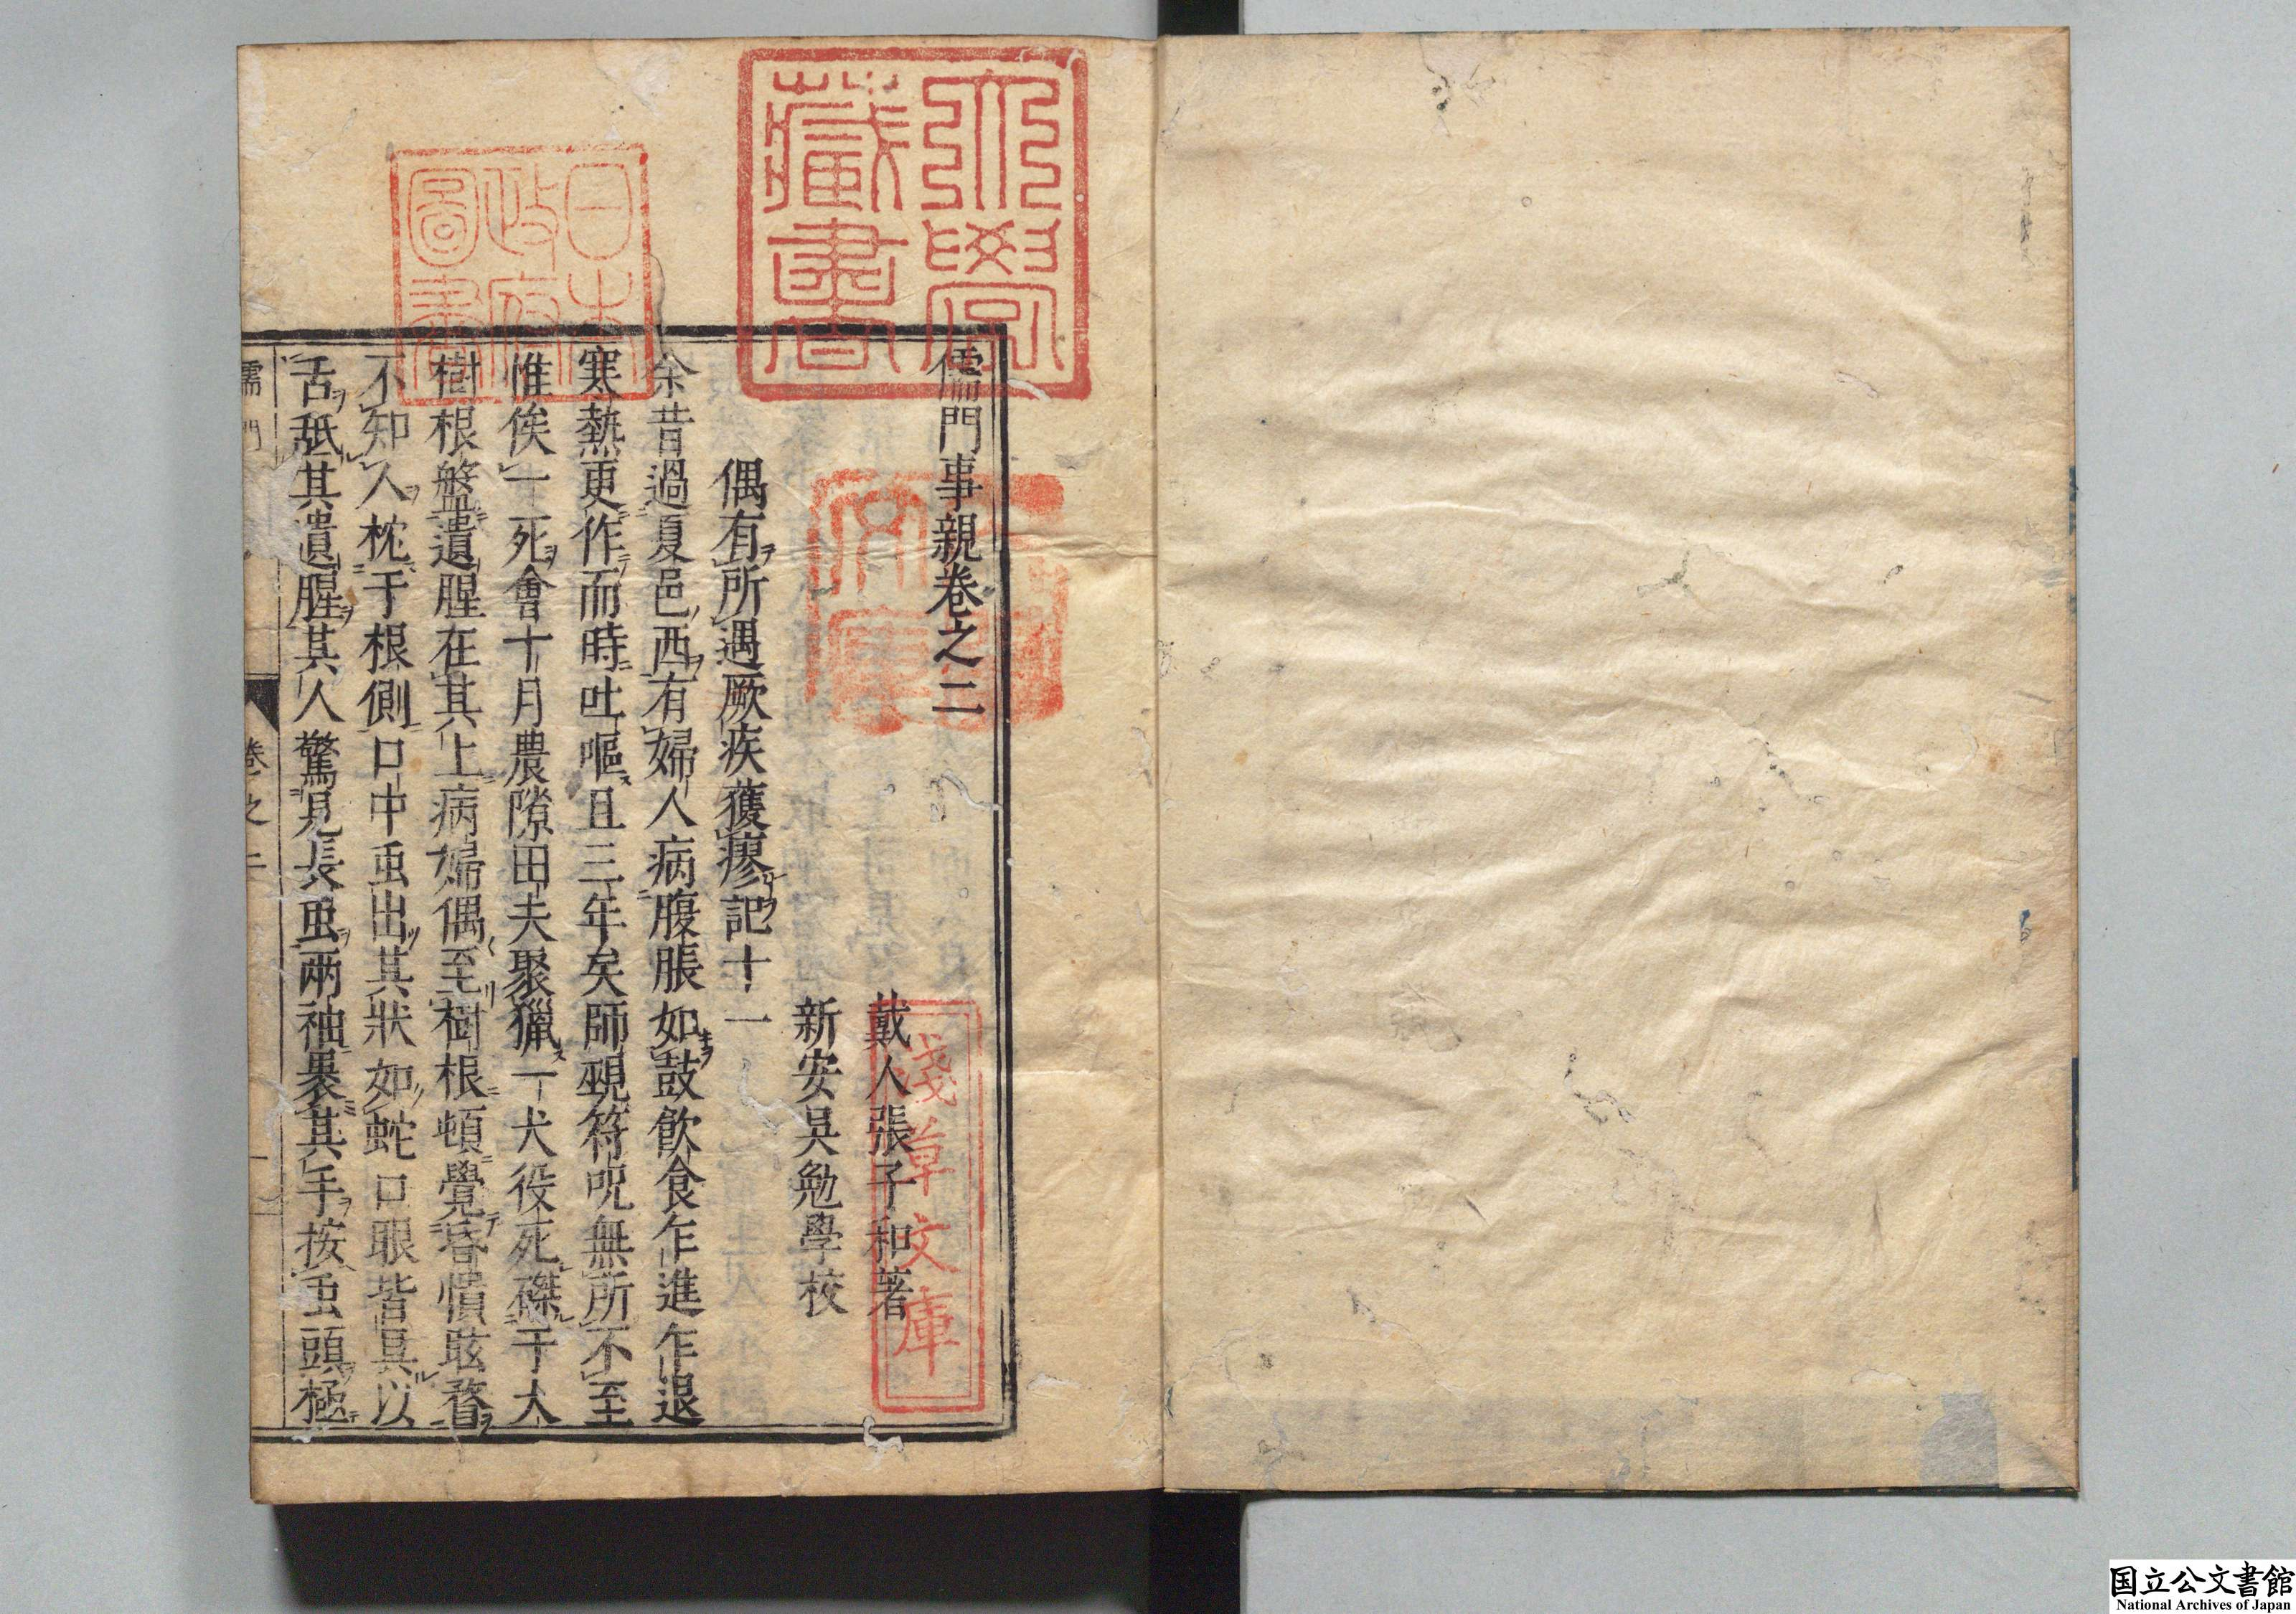 儒門事親卷之二
戴人張子和著
新安吳勉學校
偶有所遇厥疾獲瘳記十一
余昔過夏邑西有婦人病腹脹如鼓飲食乍進乍退
寒熱更作而時吐嘔且三年矣師覡符呪無所不至
惟俟一死會十月農隙田夫聚獵一犬役死磔于大
樹根盤遺腥在其上病婦偶至樹根頓覺昏憒眩瞀
不知人枕于根側口中虫出其狀如蛇口眼皆具以
舌舐其遺腥其人驚見長虫兩袖裹其手按虫頭極
儒門
卷之二
一
大學藏書
日本政府圖書
淺草文庫
国立公文書館
National Archives of Japan